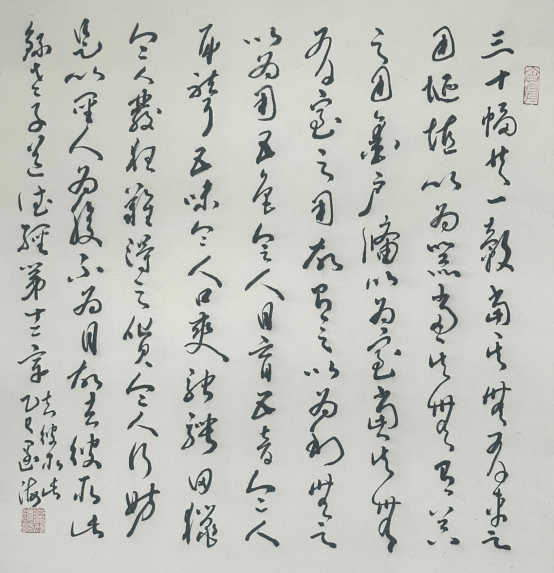 三十幅共一轂當其無有車之
用埏埴以為器當其無有器
之用鑿戶牖以為室當其無
有室之用故有之以為利無之
以為用五色令人目盲五音令人
耳聾五味令人口爽馳騁田獵
令人發狂難得之貨令人行妨
是以聖人為腹不為目故去彼取此
錄老子道德經第十二章
去彼取此
乙巳 海